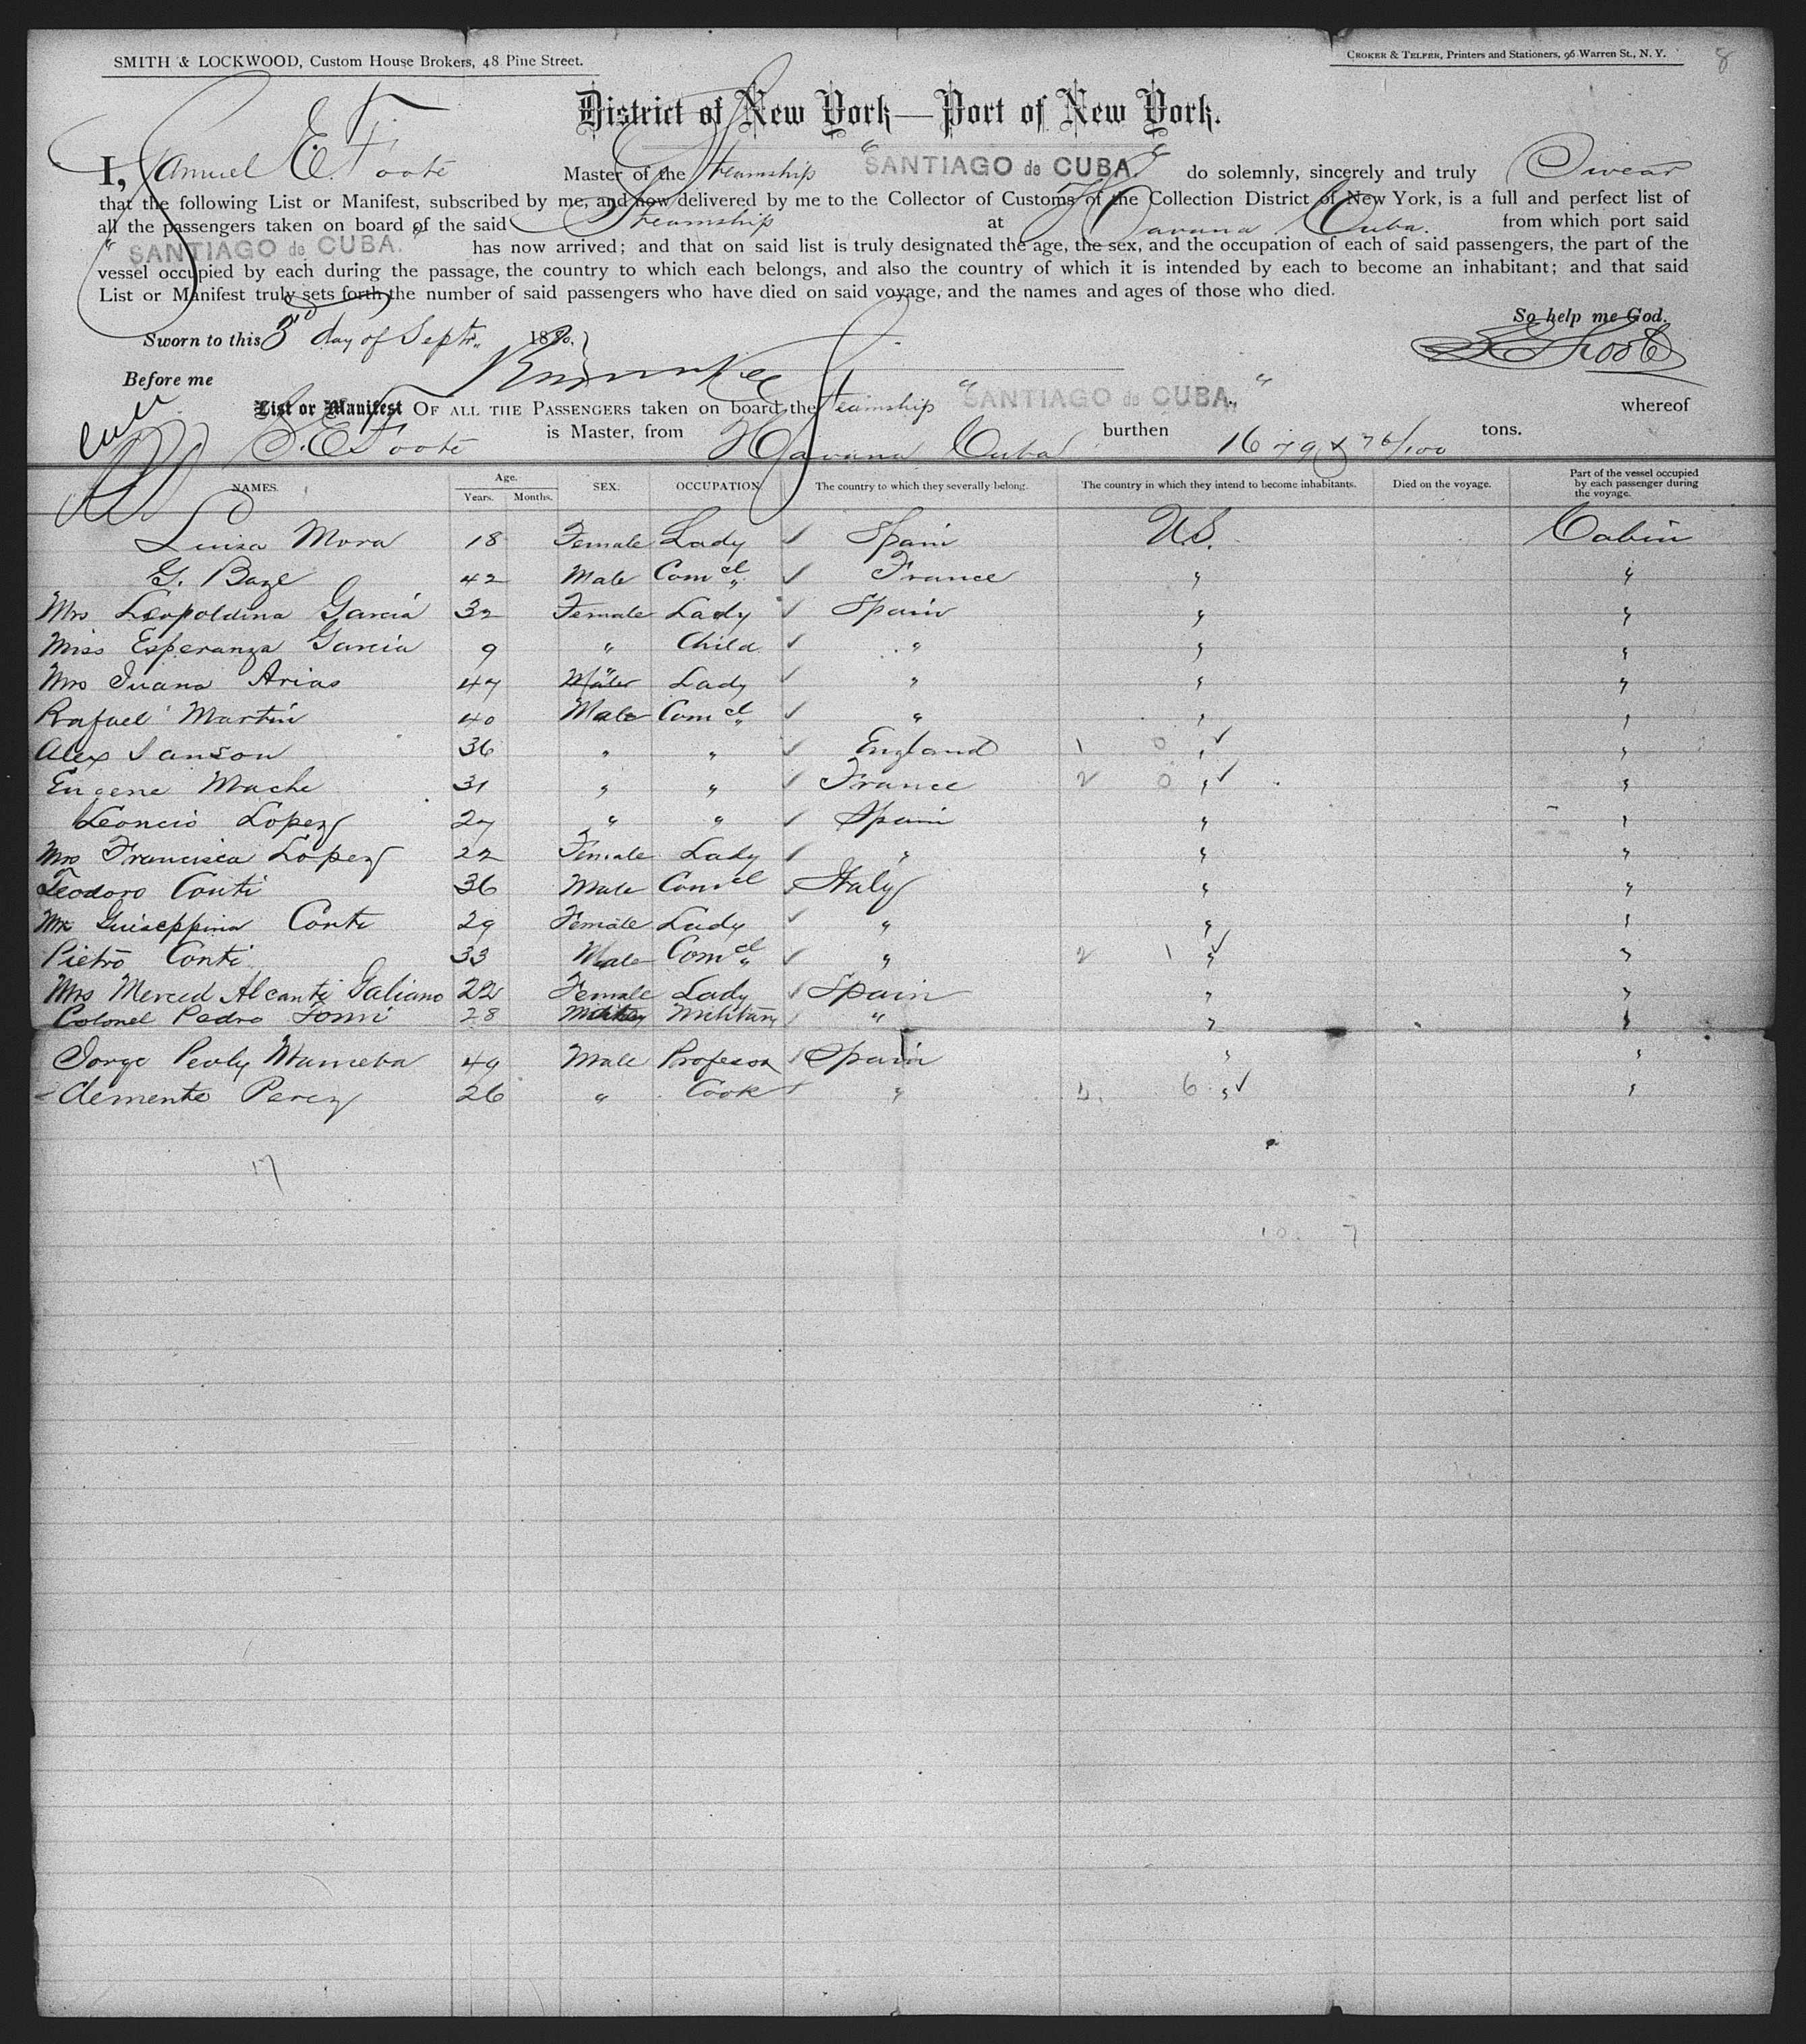 SMITH & LOCKWOOD, Custom House Brokers, 48 Pine Street.
CROKER & TELFER, Printers and Stationers, 96 Warren St., N. Y. 8
District of New York—Port of New York.
I, Samuel E. Foote Master of the Steamship "SANTIAGO de CUBA." do solemnly, sincerely and truly Swear
that the following List or Manifest, subscribed by me, and now delivered by me to the Collector of Customs of the Collection District of New York, is a full and perfect list of
all the passengers taken on board of the said Steamship at Havana Cuba. from which port said
"SANTIAGO de CUBA." has now arrived; and that on said list is truly designated the age, the sex, and the occupation of each of said passengers, the part of the
vessel occupied by each during the passage, the country to which each belongs, and also the country of which it is intended by each to become an inhabitant; and that said
List or Manifest truly sets forth the number of said passengers who have died on said voyage, and the names and ages of those who died.
So help me God.
Sworn to this 3rd day of Septr. 1880. S E Foote
Before me
List or Manifest OF ALL THE PASSENGERS taken on board the Steamship "SANTIAGO de CUBA." whereof
S. E. Foote is Master, from Havana Cuba burthen 1679 & 76/100 tons.
NAMES. Age. Years. Months. SEX. OCCUPATION. The country to which they severally belong. The country in which they intend to become inhabitants. Died on the voyage. Part of the vessel occupied by each passenger during the voyage.
Luisa Mora 18 Female Lady ✓ Spain U.S. Cabin
G. Baze 42 Male Comcl. ✓ France " "
Mrs Leopoldina Garcia 32 Female Lady ✓ Spain " "
Miss Esperanza Garcia 9 " Child ✓ " " "
Mrs Juana Arias 47 " Lady ✓ " " "
Rafael Martin 40 Male Comcl. ✓ " " "
Alex Sanson 36 " " ✓ England 1 0 " ✓ "
Eugene Mache 31 " " ✓ France 2 0 " ✓ "
Leoncio Lopez 27 " " ✓ Spain " "
Mrs Francisca Lopez 22 Female Lady ✓ " " "
Teodoro Conti 36 Male Comcl ✓ Italy " "
Mrs Guiseppina Conti 29 Female Lady ✓ " " "
Pietro Conti 33 Male Comcl. ✓ " 2 1 " ✓ "
Mrs Merced Alcanti Galiano 22 Female Lady ✓ Spain " "
Colonel Pedro 28 Military ✓ " " "
Jorge 49 Male Profesor ✓ Spain " "
Clemente Perez 26 " Cook ✓ " 6 " ✓ "
17
10. 7